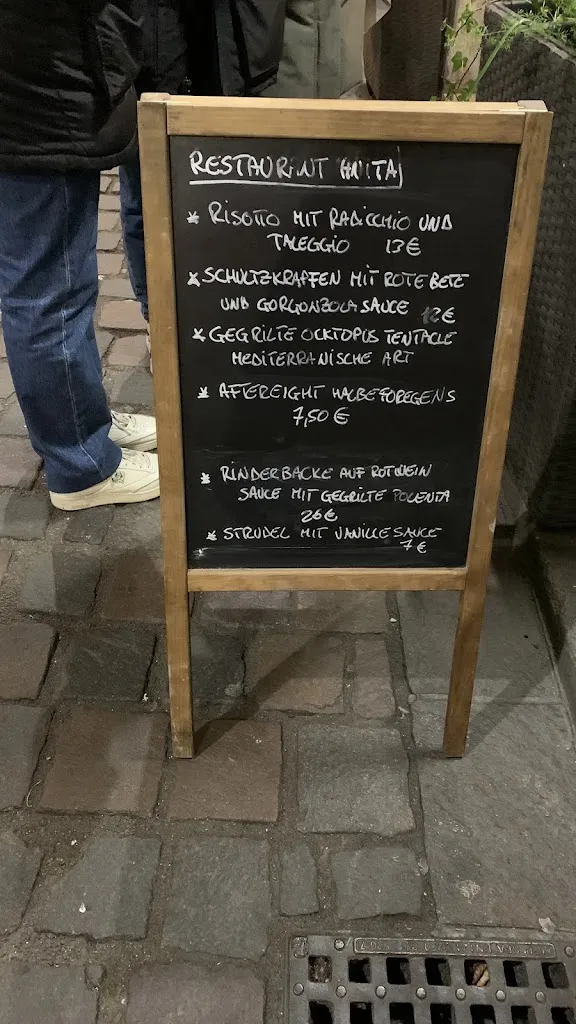 RESTAURANT ANITA
* RISOTTO MIT RADICCHIO UND
TALEGGIO 13€
* SCHULTZKRAPFEN MIT ROTE BETE
UND GORGONZOLA SAUCE 12€
* GEGRILTE OCKTOPUS TENTACLE
MEDITERRANISCHE ART
* AFTEREIGHT HALBEFOREGENS
7,50 €
* RINDERBACKE AUF ROTWEIN
SAUCE MIT GEGRILTE POLENTA
26€
* STRUDEL MIT VANILLE SAUCE
7€